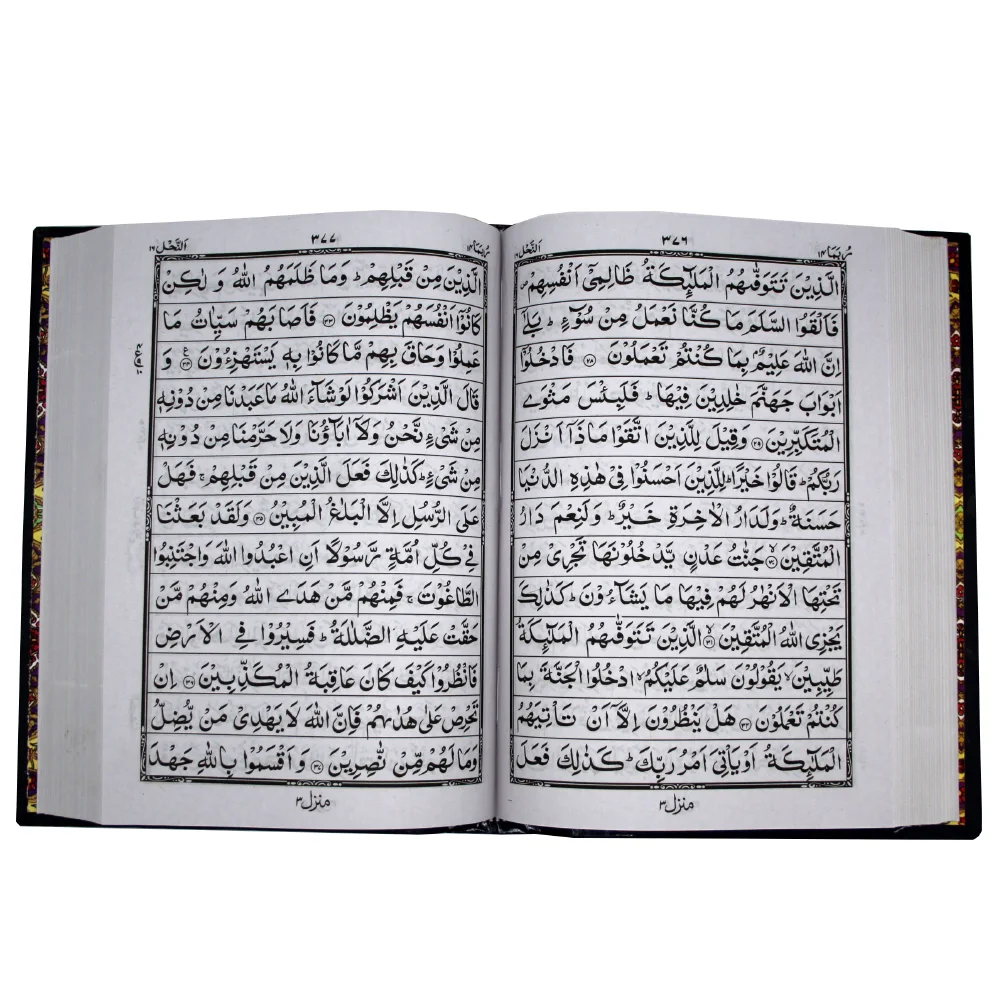 رُبَمَا ١٤
٣٧٦
اَلنَّحْل ١٦
الَّذِيْنَ تَتَوَفّٰىهُمُ الْمَلٰٓئِكَةُ ظَالِمِيْۤ اَنْفُسِهِمْ ص
فَاَلْقَوُا السَّلَمَ مَا كُنَّا نَعْمَلُ مِنْ سُوْٓءٍ ؕ بَلٰۤى
اِنَّ اللّٰهَ عَلِيْمٌۢ بِمَا كُنْتُمْ تَعْمَلُوْنَ ﴿۲۸﴾ فَادْخُلُوْۤا
اَبْوَابَ جَهَنَّمَ خٰلِدِيْنَ فِيْهَا ؕ فَلَبِئْسَ مَثْوَى
الْمُتَكَبِّرِيْنَ ﴿۲۹﴾ وَقِيْلَ لِلَّذِيْنَ اتَّقَوْا مَاذَاۤ اَنْزَلَ
رَبُّكُمْ ؕ قَالُوْا خَيْرًا ؕ لِلَّذِيْنَ اَحْسَنُوْا فِيْ هٰذِهِ الدُّنْيَا
حَسَنَةٌ ؕ وَلَدَارُ الْاٰخِرَةِ خَيْرٌ ؕ وَلَنِعْمَ دَارُ
الْمُتَّقِيْنَ ﴿۳۰﴾ ۙ جَنّٰتُ عَدْنٍ يَّدْخُلُوْنَهَا تَجْرِيْ مِنْ
تَحْتِهَا الْاَنْهٰرُ لَهُمْ فِيْهَا مَا يَشَآءُوْنَ ؕ كَذٰلِكَ
يَجْزِي اللّٰهُ الْمُتَّقِيْنَ ﴿۳۱﴾ ۙ الَّذِيْنَ تَتَوَفّٰىهُمُ الْمَلٰٓئِكَةُ
طَيِّبِيْنَ ۙ يَقُوْلُوْنَ سَلٰمٌ عَلَيْكُمُ ۙ ادْخُلُوا الْجَنَّةَ بِمَا
كُنْتُمْ تَعْمَلُوْنَ ﴿۳۲﴾ هَلْ يَنْظُرُوْنَ اِلَّاۤ اَنْ تَاْتِيَهُمُ
الْمَلٰٓئِكَةُ اَوْ يَاْتِيَ اَمْرُ رَبِّكَ ؕ كَذٰلِكَ فَعَلَ
منزل ٣
رُبَمَا ١٤
٣٧٧
اَلنَّحْل ١٦
الَّذِيْنَ مِنْ قَبْلِهِمْ ؕ وَمَا ظَلَمَهُمُ اللّٰهُ وَ لٰكِنْ
كَانُوْۤا اَنْفُسَهُمْ يَظْلِمُوْنَ ﴿۳۳﴾ فَاَصَابَهُمْ سَيِّاٰتُ مَا
عَمِلُوْا وَحَاقَ بِهِمْ مَّا كَانُوْا بِهٖ يَسْتَهْزِءُوْنَ ﴿۳۴﴾ ع وَ
قَالَ الَّذِيْنَ اَشْرَكُوْا لَوْ شَآءَ اللّٰهُ مَا عَبَدْنَا مِنْ دُوْنِهٖ
مِنْ شَيْءٍ نَّحْنُ وَلَاۤ اٰبَآؤُنَا وَلَا حَرَّمْنَا مِنْ دُوْنِهٖ
مِنْ شَيْءٍ ؕ كَذٰلِكَ فَعَلَ الَّذِيْنَ مِنْ قَبْلِهِمْ ۚ فَهَلْ
عَلَى الرُّسُلِ اِلَّا الْبَلٰغُ الْمُبِيْنُ ﴿۳۵﴾ وَلَقَدْ بَعَثْنَا
فِيْ كُلِّ اُمَّةٍ رَّسُوْلًا اَنِ اعْبُدُوا اللّٰهَ وَاجْتَنِبُوا
الطَّاغُوْتَ ۚ فَمِنْهُمْ مَّنْ هَدَى اللّٰهُ وَمِنْهُمْ مَّنْ
حَقَّتْ عَلَيْهِ الضَّلٰلَةُ ؕ فَسِيْرُوْا فِي الْاَرْضِ
فَانْظُرُوْا كَيْفَ كَانَ عَاقِبَةُ الْمُكَذِّبِيْنَ ﴿۳۶﴾ اِنْ
تَحْرِصْ عَلٰى هُدٰىهُمْ فَاِنَّ اللّٰهَ لَا يَهْدِيْ مَنْ يُّضِلُّ
وَمَا لَهُمْ مِّنْ نّٰصِرِيْنَ ﴿۳۷﴾ وَاَقْسَمُوْا بِاللّٰهِ جَهْدَ
منزل ٣